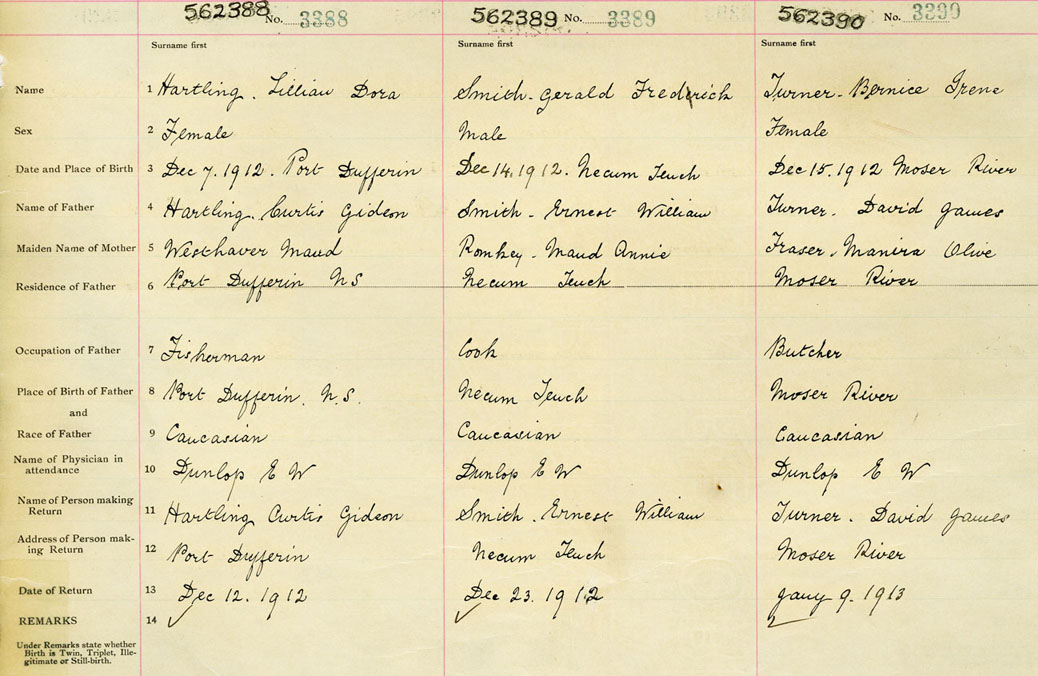 562388 No. 3388 562389 No. 3389 562390 No. 3390
Surname first Surname first Surname first
Name 1 Hartling. Lillian Dora Smith - Gerald Frederick Turner - Bernice Irene
Sex 2 Female Male Female
Date and Place of Birth 3 Dec 7. 1912. Port Dufferin Dec 14. 1912. Necum Teuch Dec 15. 1912 Moser River
Name of Father 4 Hartling. Curtis Gideon Smith - Ernest William Turner. David James
Maiden Name of Mother 5 Westhaver Maud Romkey - Maud Annie Fraser. Manira Olive
Residence of Father 6 Port Dufferin N S Necum Teuch Moser River
Occupation of Father 7 Fisherman Cook Butcher
Place of Birth of Father 8 Port Dufferin. N. S. Necum Teuch Moser River
and
Race of Father 9 Caucasian Caucasian Caucasian
Name of Physician in
attendance 10 Dunlop E W Dunlop E W Dunlop E W
Name of Person making
Return 11 Hartling Curtis Gideon Smith. Ernest William Turner. David James
Address of Person mak-
ing Return 12 Port Dufferin Necum Teuch Moser River
Date of Return 13 Dec 12. 1912 Dec 23. 1912 Jany 9. 1913
REMARKS 14 ✓ ✓ ✓
Under Remarks state whether
Birth is Twin, Triplet, Ille-
gitimate or Still-birth.